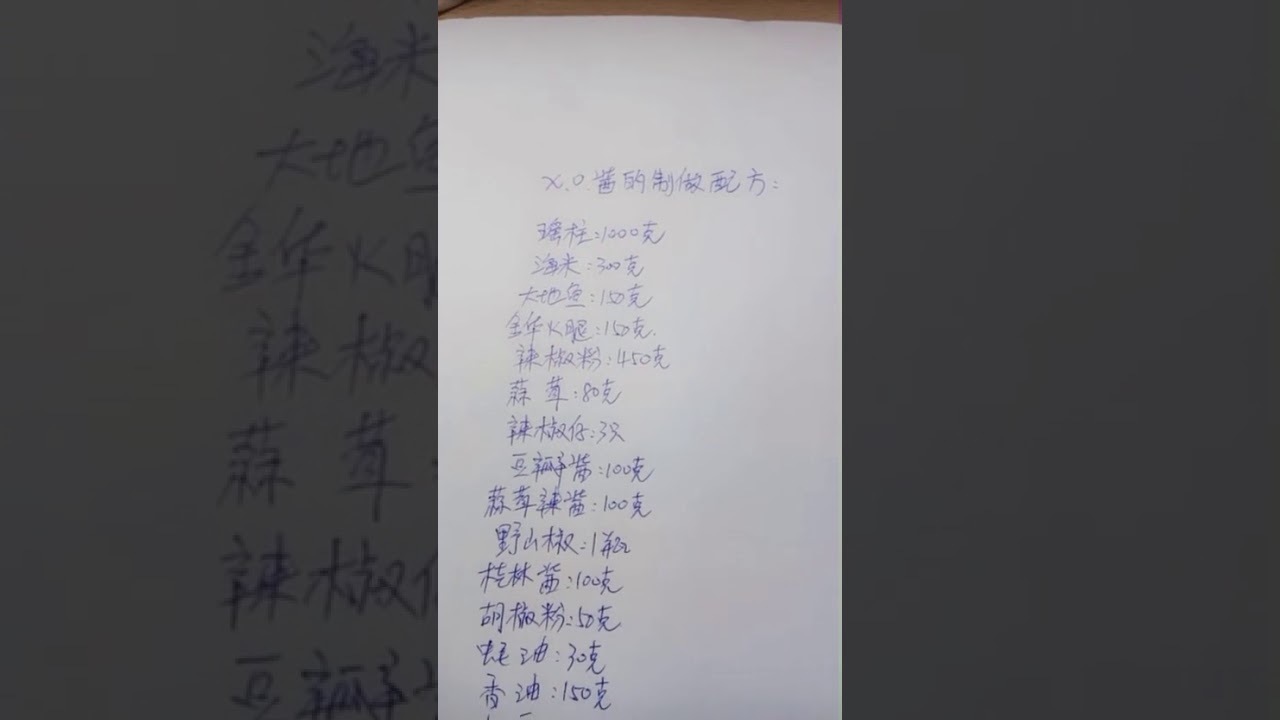 X.O.酱的制做配方:
瑶柱:1000克
海米:300克
大地鱼:150克
金华火腿:150克.
辣椒粉:450克
蒜茸:80克
辣椒仔:3只
豆瓣酱:100克
蒜茸辣酱:100克
野山椒:1瓶
桂林酱:100克
胡椒粉:50克
蚝油:30克
香油:150克